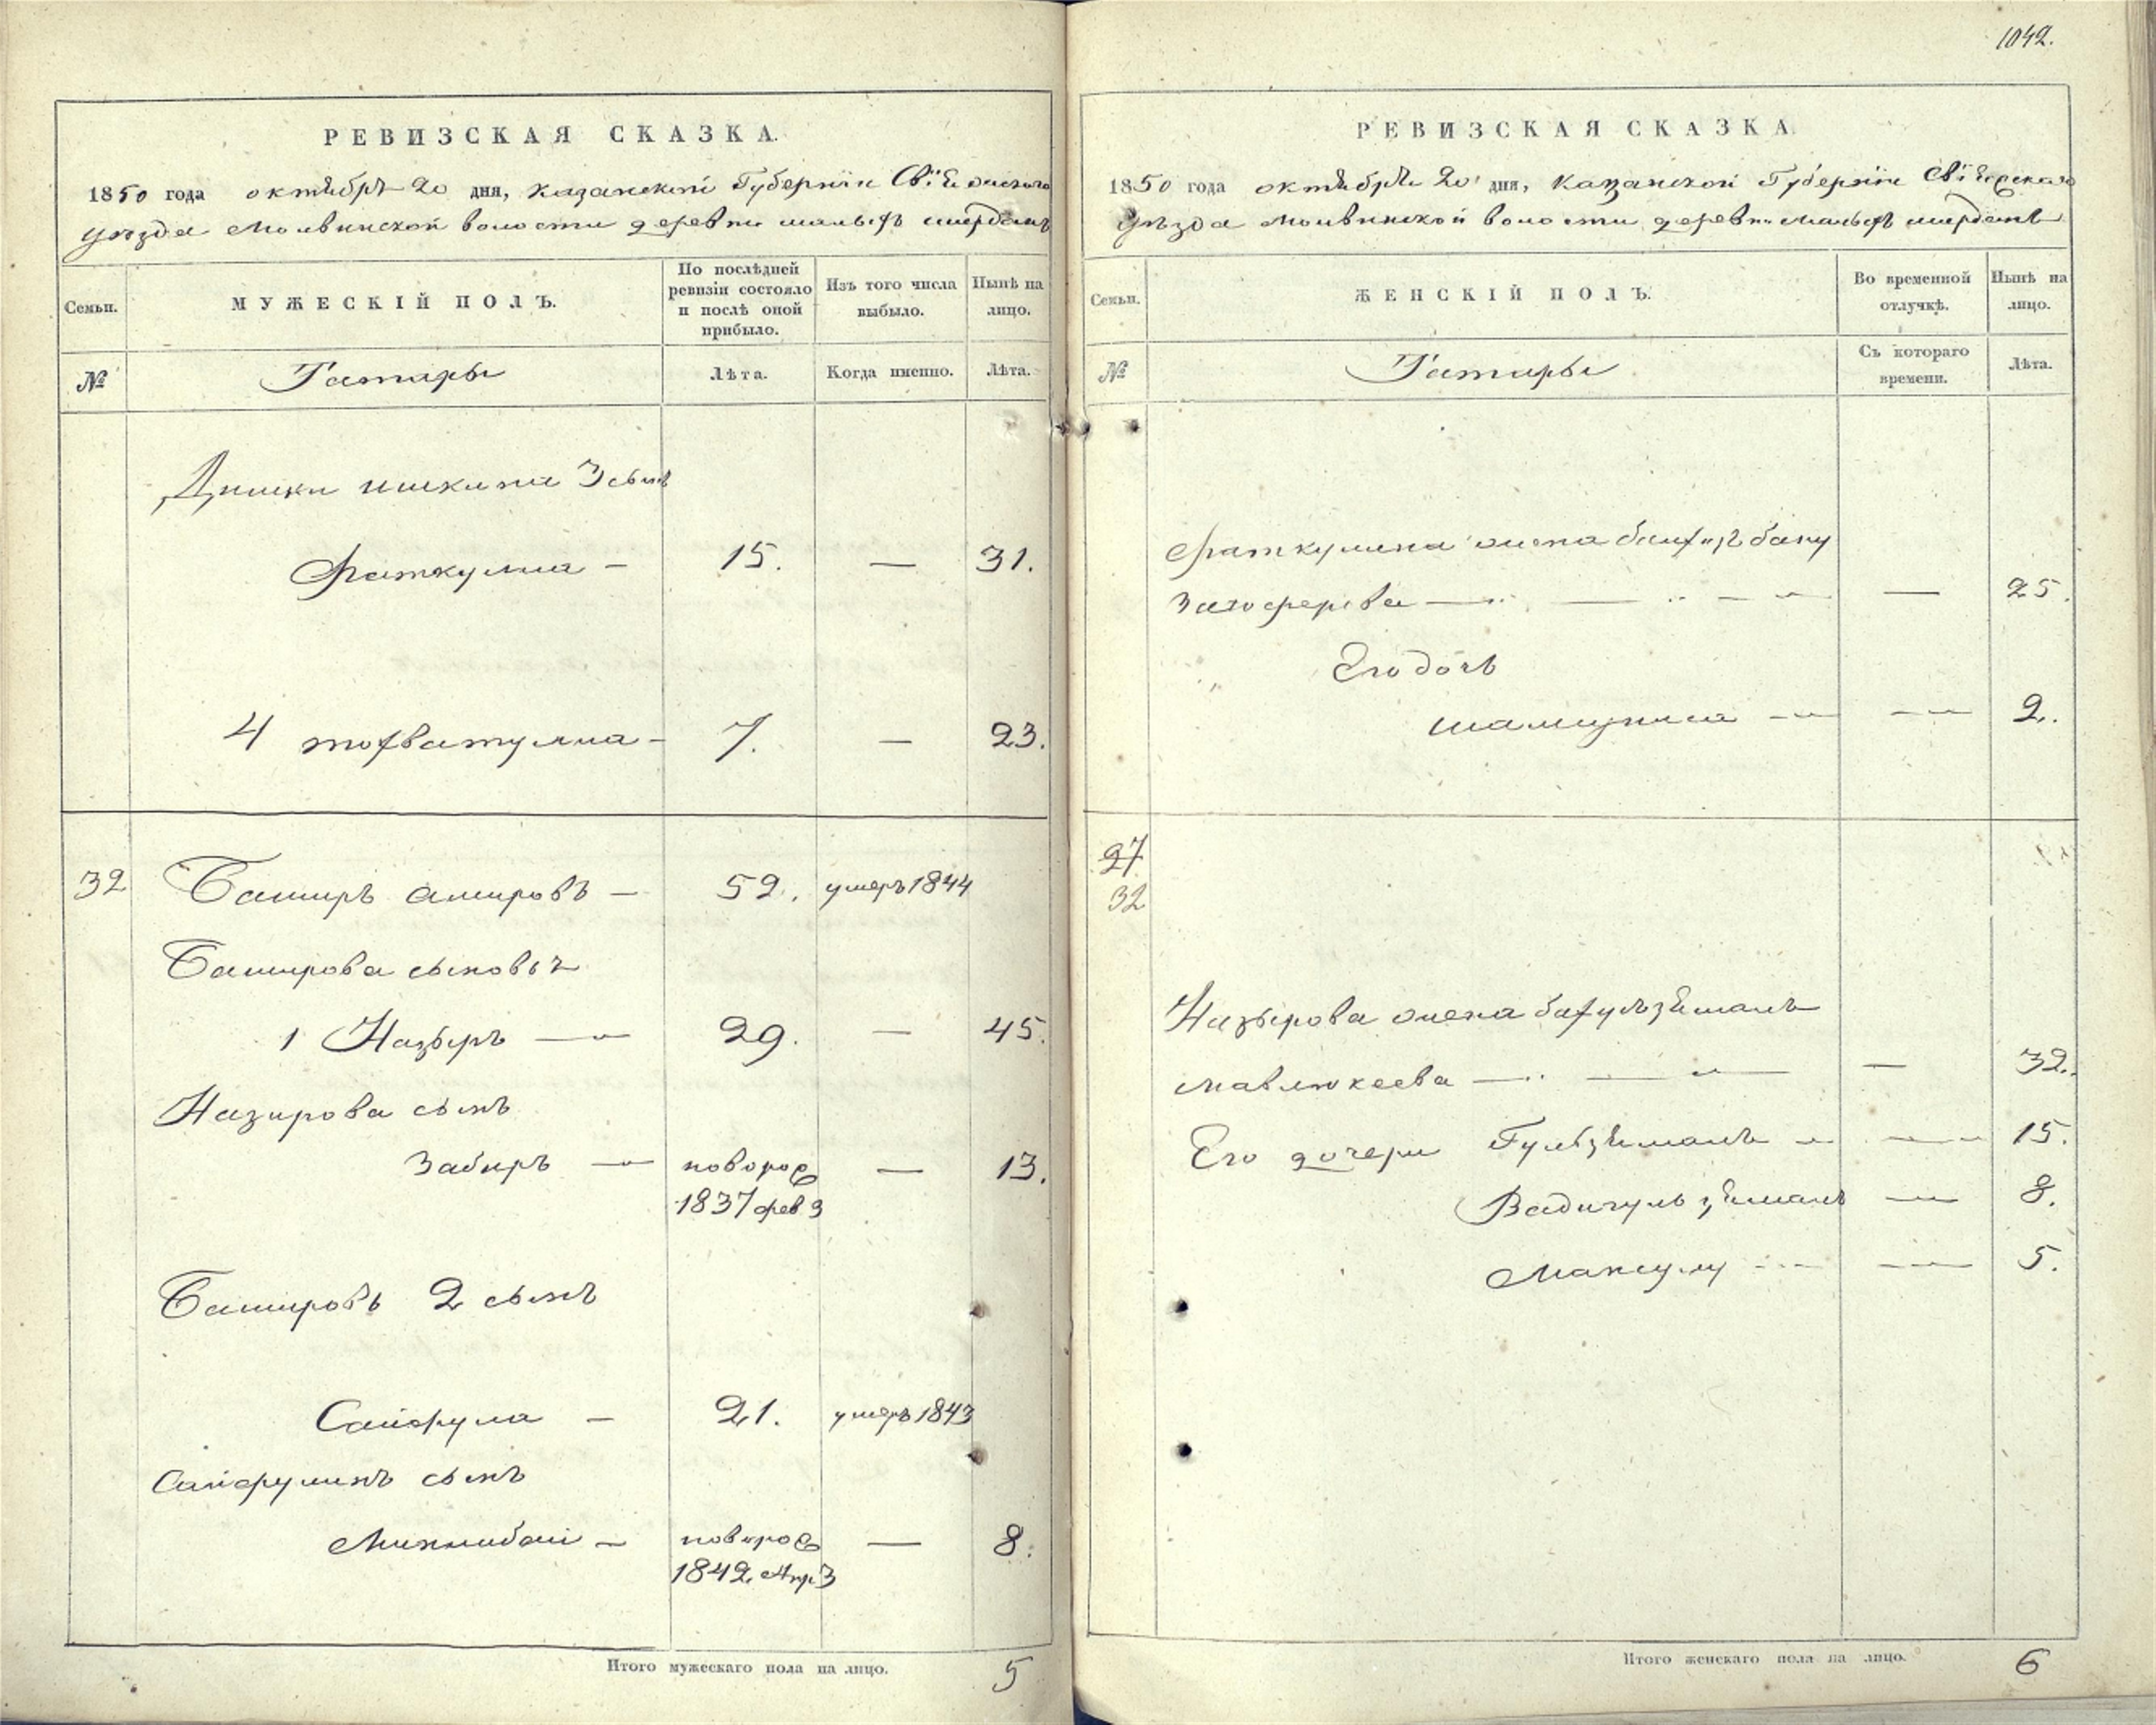 РЕВИЗСКАЯ СКАЗКА.
1850 года октября 20 дня, Казанской Губернии Свіяжскаго
уѣзда Молвинской волости деревни малыхъ ширданъ
Семьи.
МУЖЕСКІЙ ПОЛЪ.
По послѣдней ревизіи состояло и послѣ оной прибыло.
Изъ того числа выбыло.
Нынѣ на лицо.
№
Татары
Лѣта.
Когда именно.
Лѣта.
ишкина 3 сынъ
Фаткулла — 15. — 31.
4 тохватулла — 7. — 23.
32 Баширъ амировъ — 52. умеръ 1844
Баширова сыновья
1 Назыръ — 29. — 45.
Назирова сынъ
Забиръ — новорож — 13.
1837 фев 3
Башировъ 2 сынъ
Сайфула — 21. умеръ 1843
Сайфулинъ сынъ
Миннибай — новорож — 8.
1842 Апр 3
Итого мужескаго пола на лицо. 5
1042.
РЕВИЗСКАЯ СКАЗКА
1850 года октября 20 дня, Казанской Губерніи Свіяжскаго
уѣзда Молвинской волости деревни малыхъ ширданъ
Семьи.
ЖЕНСКІЙ ПОЛЪ.
Во временной отлучкѣ.
Нынѣ на лицо.
№
Татары
Съ котораго времени.
Лѣта.
Фаткулина жена бану
— — 25.
Его дочь
— — 2.
27
32
Назырова жена
мавлюкеева — — 32.
Его дочери — — 15.
— 8.
— — 5.
Итого женскаго пола на лицо. 6